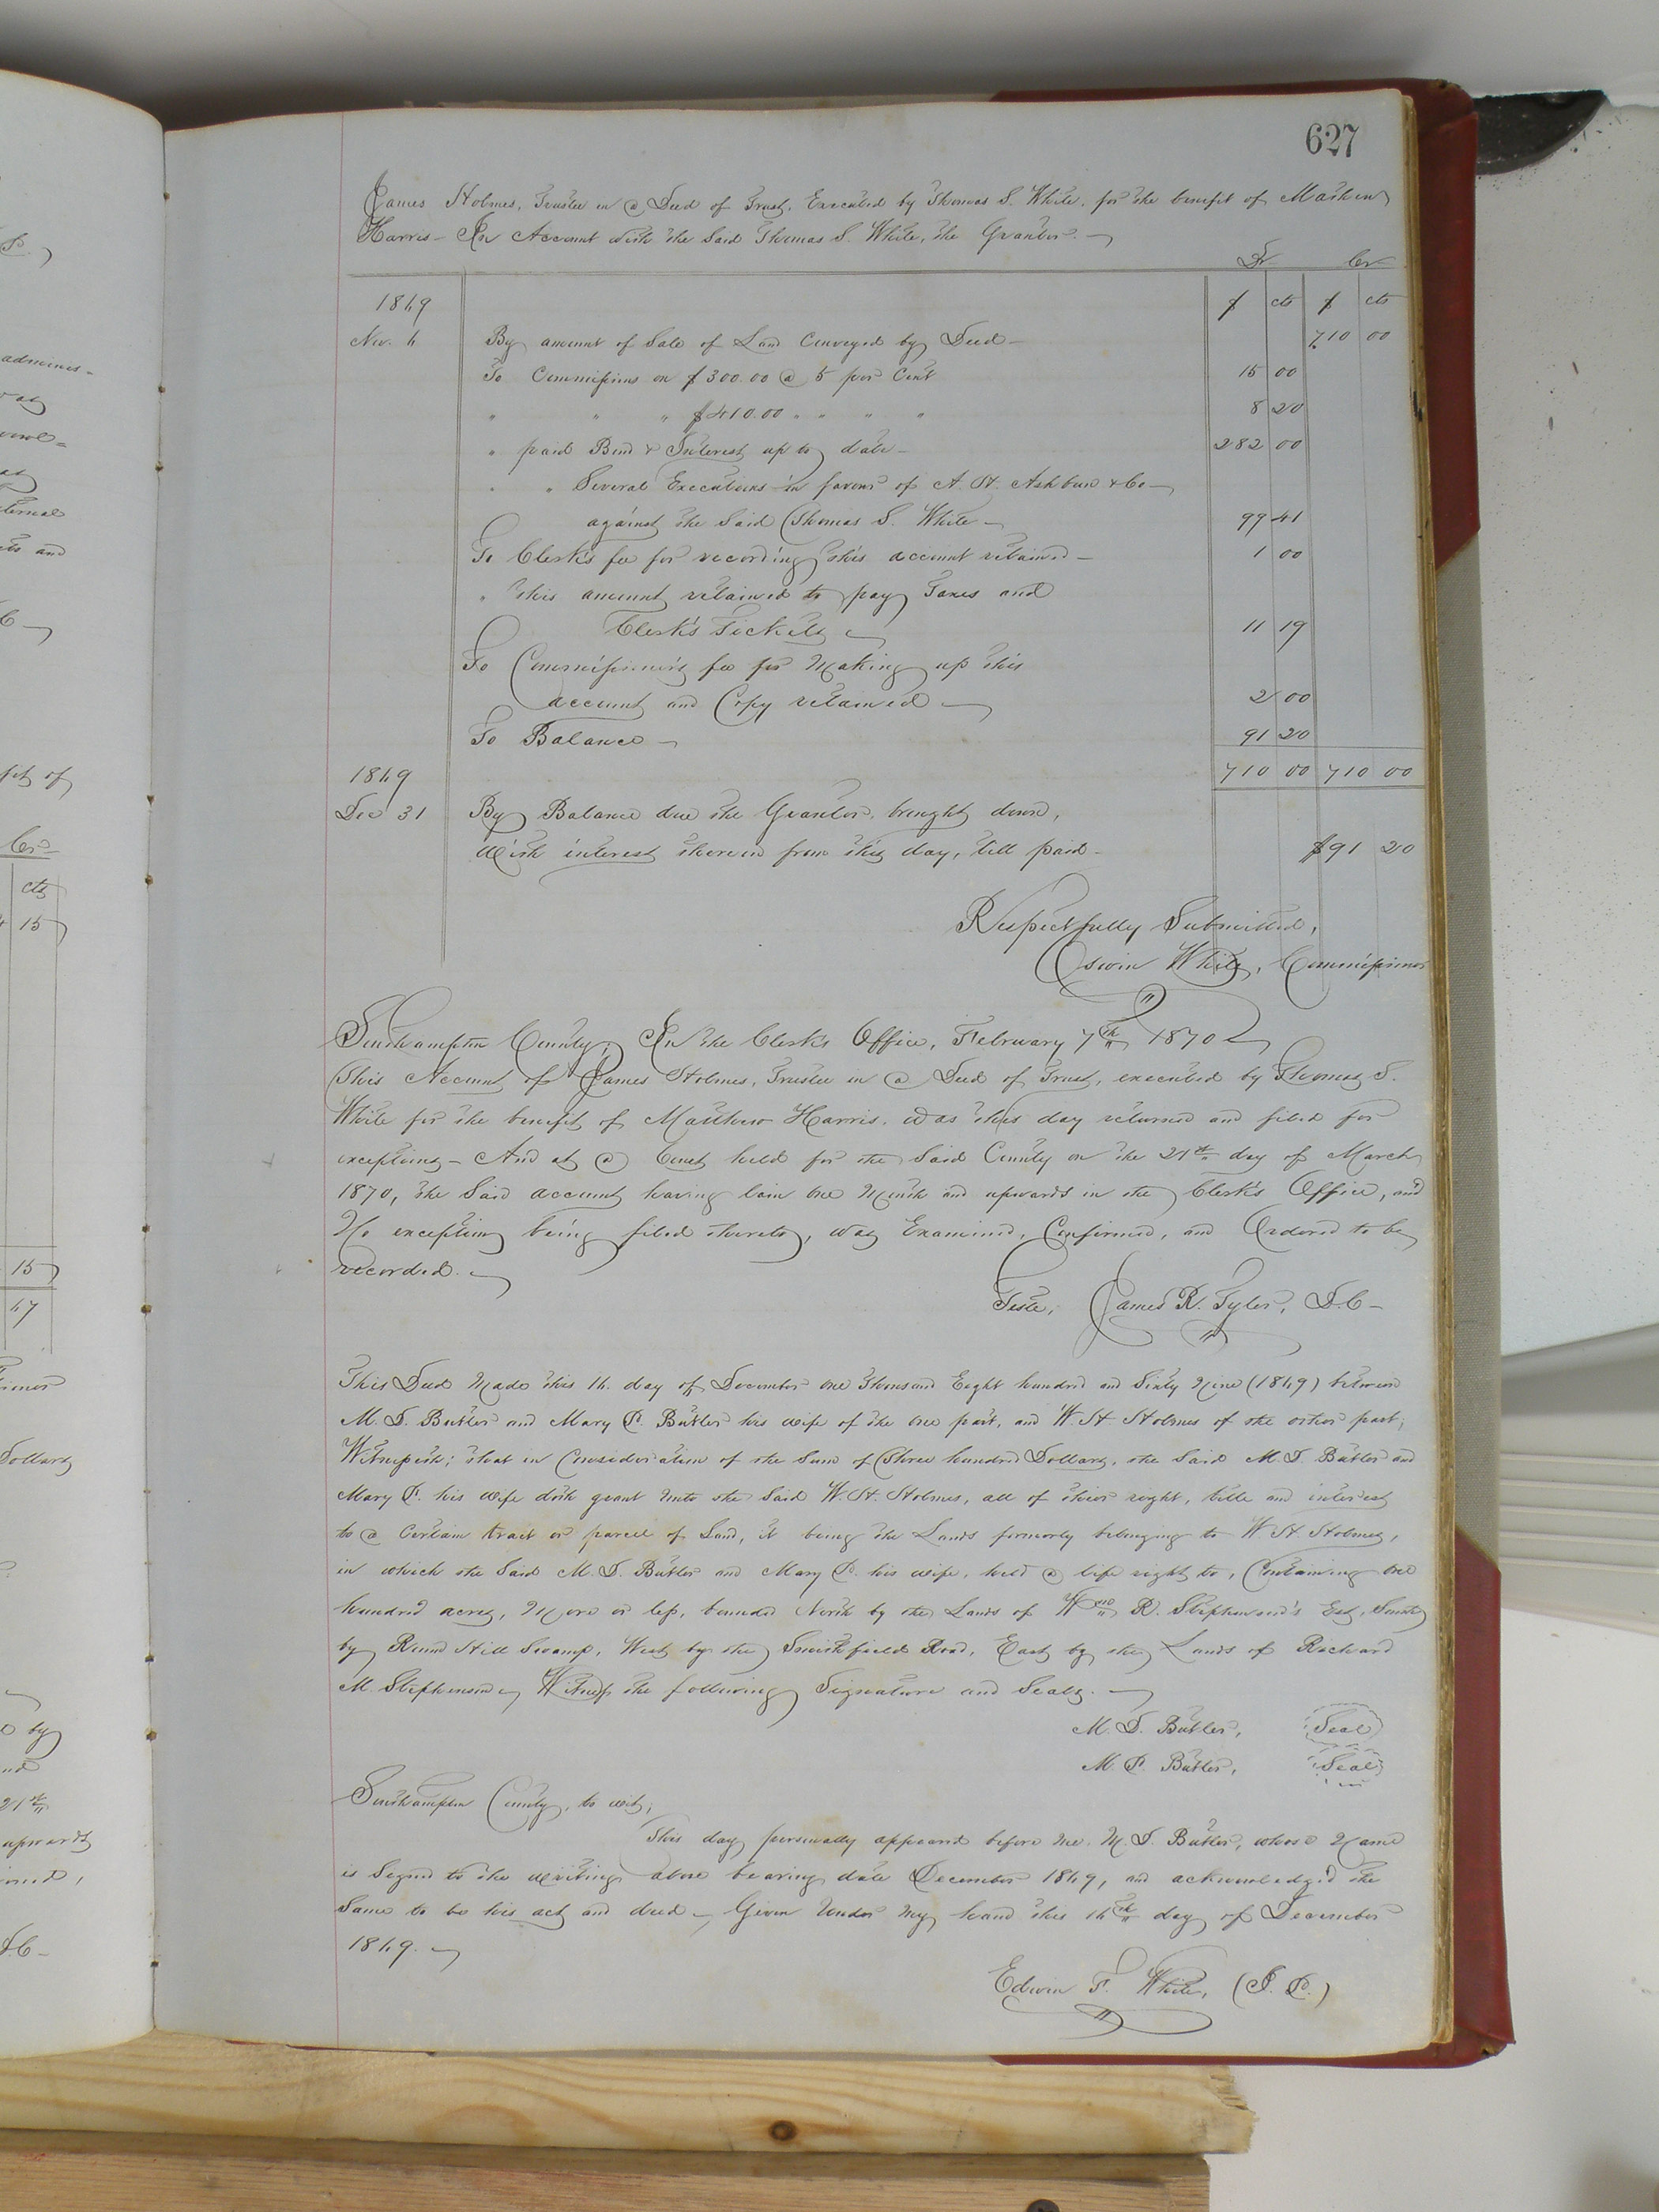 627
James Holmes, Trustee in a Deed of Trust, Executed by Thomas S. White, for the benefit of Mathew
Harris – In Account with the Said Thomas S. White, the Grantor.
Dr Cr
1869 $ cts $ cts
Nov. 6 By amount of Sale of Land Conveyed by Deed – 710 00
To Commissions on $300.00 @ 5 per Cent 15 00
" " " $410.00 " " " " 8 20
" paid Bond & Interest up to date – 282 00
" " Several Executions in favour of A. H. Ashburn & Co –
against the Said Thomas S. White – 99 41
To Clerk's fee for recording this account retained – 1 00
" this amount retained to pay Taxes and
Clerk's Tickets 11 19
To Commissioner's fee for Making up this
account and Copy retained – 2 00
To Balance – 91 20
1869 710 00 710 00
Dec 31 By Balance due the Grantor, brought down,
with interest thereon from this day, till paid – $91 20
Respectfully Submitted,
Edwin White, Commissioner
Southampton County; In the Clerk's Office, February 7th 1870
This Account of James Holmes, Trustee in a Deed of Trust, executed by Thomas S.
White for the benefit of Matthew Harris, was this day returned and filed for
exceptions – And at a Court held for the Said County on the 21st day of March
1870, the Said account having lain one Month and upwards in the Clerk's Office, and
No exceptions being filed thereto, was Examined, Confirmed, and Ordered to be
recorded.
Teste, James R. Tyler, D.C –
This Deed Made this 16. day of December one Thousand Eight hundred and Sixty Nine (1869) between
M. D. Butler and Mary P. Butler his wife of the one part, and W. H. Holmes of the other part;
Witnesseth; that in Consideration of the Sum of Three hundred Dollars, the Said M. D. Butler and
Mary P. his wife doth grant unto the Said W. H. Holmes, all of their right, title and interest
to a Certain tract or parcel of Land, it being the Lands formerly belonging to W H Holmes,
in which the Said M. D. Butler and Mary P. his wife, held a life right to, Containing one
hundred acres, More or less, bounded North by the Lands of Wm R. Stephenson's Est, South
by Round Hill Swamp, West by the Smithfield Road, East by the Lands of Richard
M. Stephenson, Witness the following Signature and Seals.
M. D. Butler, Seal
M. P. Butler, Seal
Southampton County, to wit;
This day personally appeared before me, M. D. Butler, whose Name
is Signed to the writing above bearing date December 1869, and acknowledged the
Same to be his act and deed – Given Under My hand this 16th day of December
1869.
Edwin F. White, (J. P.)